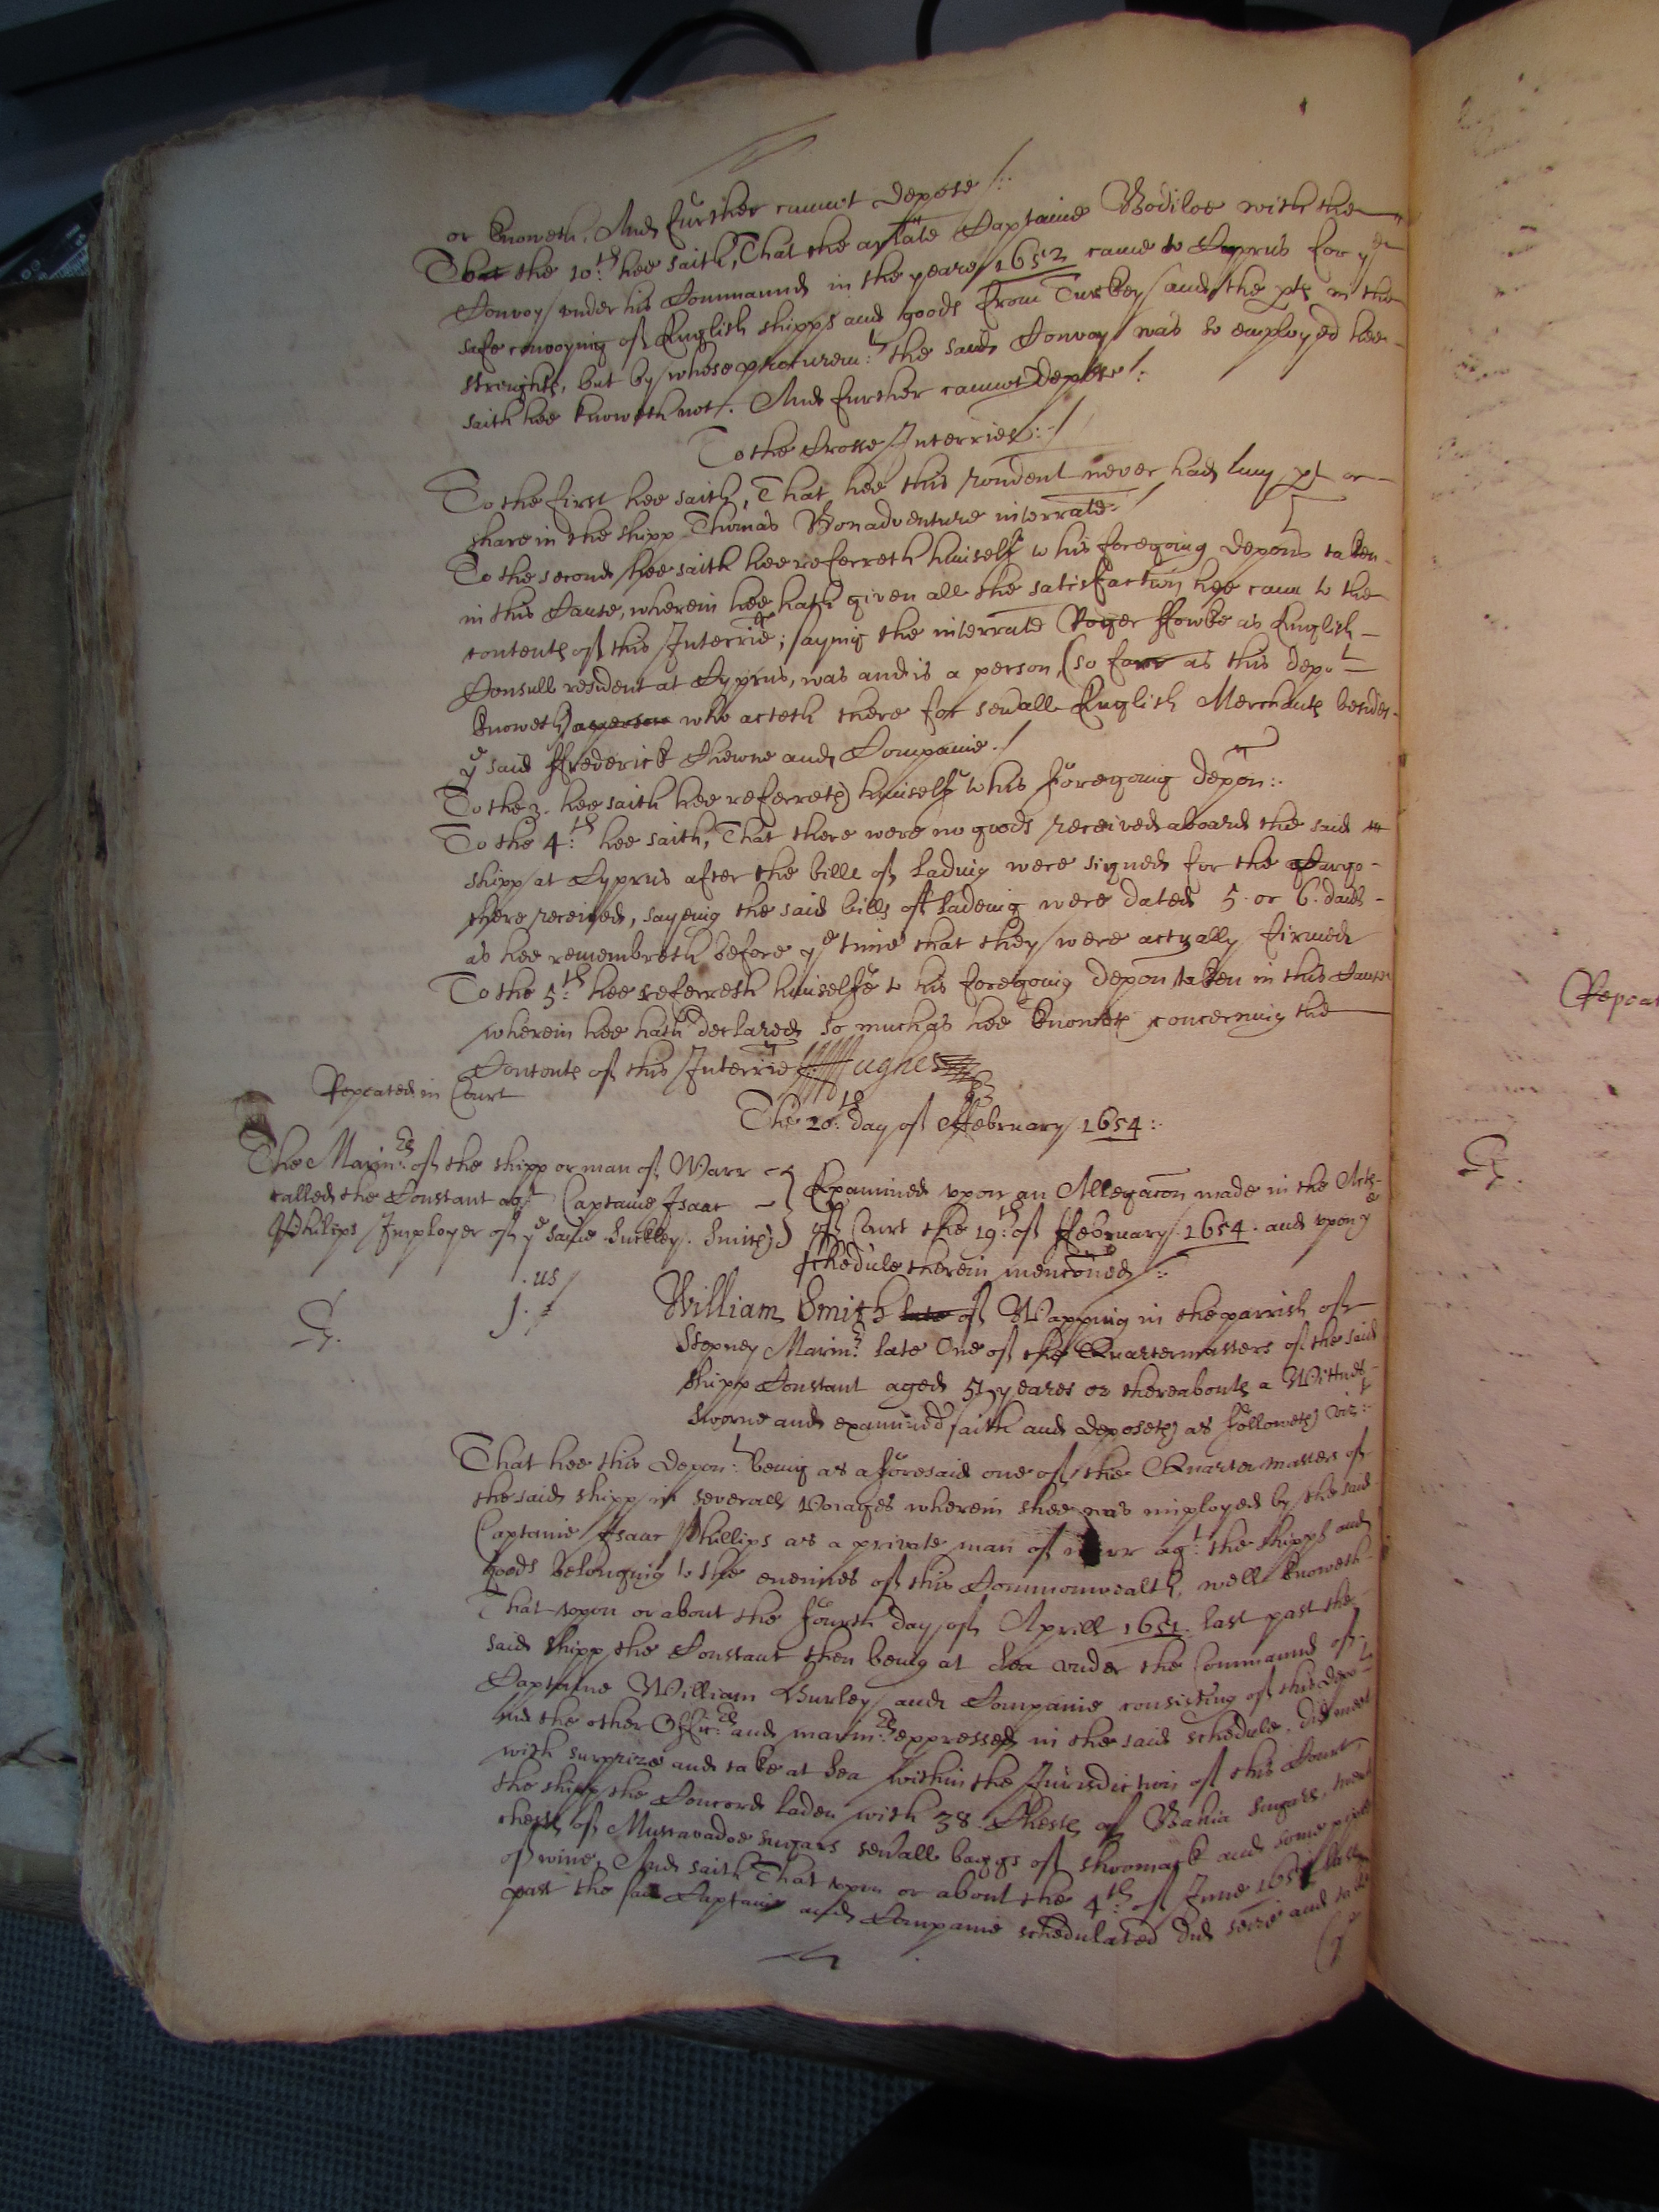 or knoweth. And further cannot depose /:.
To the 10:th hee saith, That the arlate Captaine Bodiloe with the
Convoy under his Commaund in the yeare 1652 came to Cyprus for ye
safe convoying of English shipps and goods from Turkey and the pts in the
streights, but by whose procurem:t the said Convoy was so employed hee
saith hee knoweth not. And further cannot depose /:
To the Crosse Interries:/
To the first hee saith, That hee this rondent never had any pt or
share in the shipp Thomas Bonadventure interrate /
To the second hee saith hee referreth himself to his foregoing depon taken
in this Cause, wherein hee hath given all the satisfaction hee cann to the
contents of this Interrie; saying the interrate Roger ffowke as English
Consull resident at Cyprus, was and is a person, (so farr as this depot
knoweth) a person who acteth there for sevall English Merchants besides
ye said ffrederick and Companie./
To the 3. hee saith hee referreth himself to his foregoing depon:.
To the 4:th hee saith, That there were no goods received aboard the said
shipp at Cyprus after the bills of lading were signed for the Cargo
there received, sayeing the said bills of ladeing were dated 5. or 6. daies
as hee remembreth before ye time that they were actually firmed
To the 5:th hee referreth himselfe to his foregoing depon taken in this Cause
wherein hee hath declared so much as hee knoweth concerning the
Contents of this Interrie Hughes
Repeated in Court
The 20:th day of ffebruary 1654:.
The Marinrs of the shipp or man of Warr
called the Constant agt Captaine Isaac
Phillips Imployer of ye same. Suckley. Smith
Examined upon an Allegacon made in the Acts
of Court the 19:th of ffebruary 1654. and upon ye
schedule therein menconed /:.
.us/
j.
William Smith late of Wapping in the parrish of
Stepney Marinr late One of the Quartermasters of the said
shipp Constant aged 51 yeares or thereabouts a Wittnes
sworne and examined saith and deposeth as followeth viz:t
That hee this depon:t being as aforesaid one of the Quarter masters of
the said shipp in severall voiages wherein shee was imployed by the said
Captaine Isaac Phillips as a private man of warr agt the shipps and
goods belonging to the enemies of this Commonwealth, well knoweth
That upon or about the fourth day of Aprill 1651 last past the
said shipp the Constant then being at Sea under the Commaund of
Captaine William Gurley and Companie consisting of this depot
and the other Officrs and marinrs expressed in the said schedule, did meet
with surprize and take at Sea within the Jurisdiction of this Court
the shipp the Concord laden with 38 Chests of Bahia sugars,
chests of Muscavadoe sugars sevall baggs of and some pipes
of wine, And saith That upon or about the 4:th of June last
past the said Captaine and Companie scheduled did seize and take
Repeat